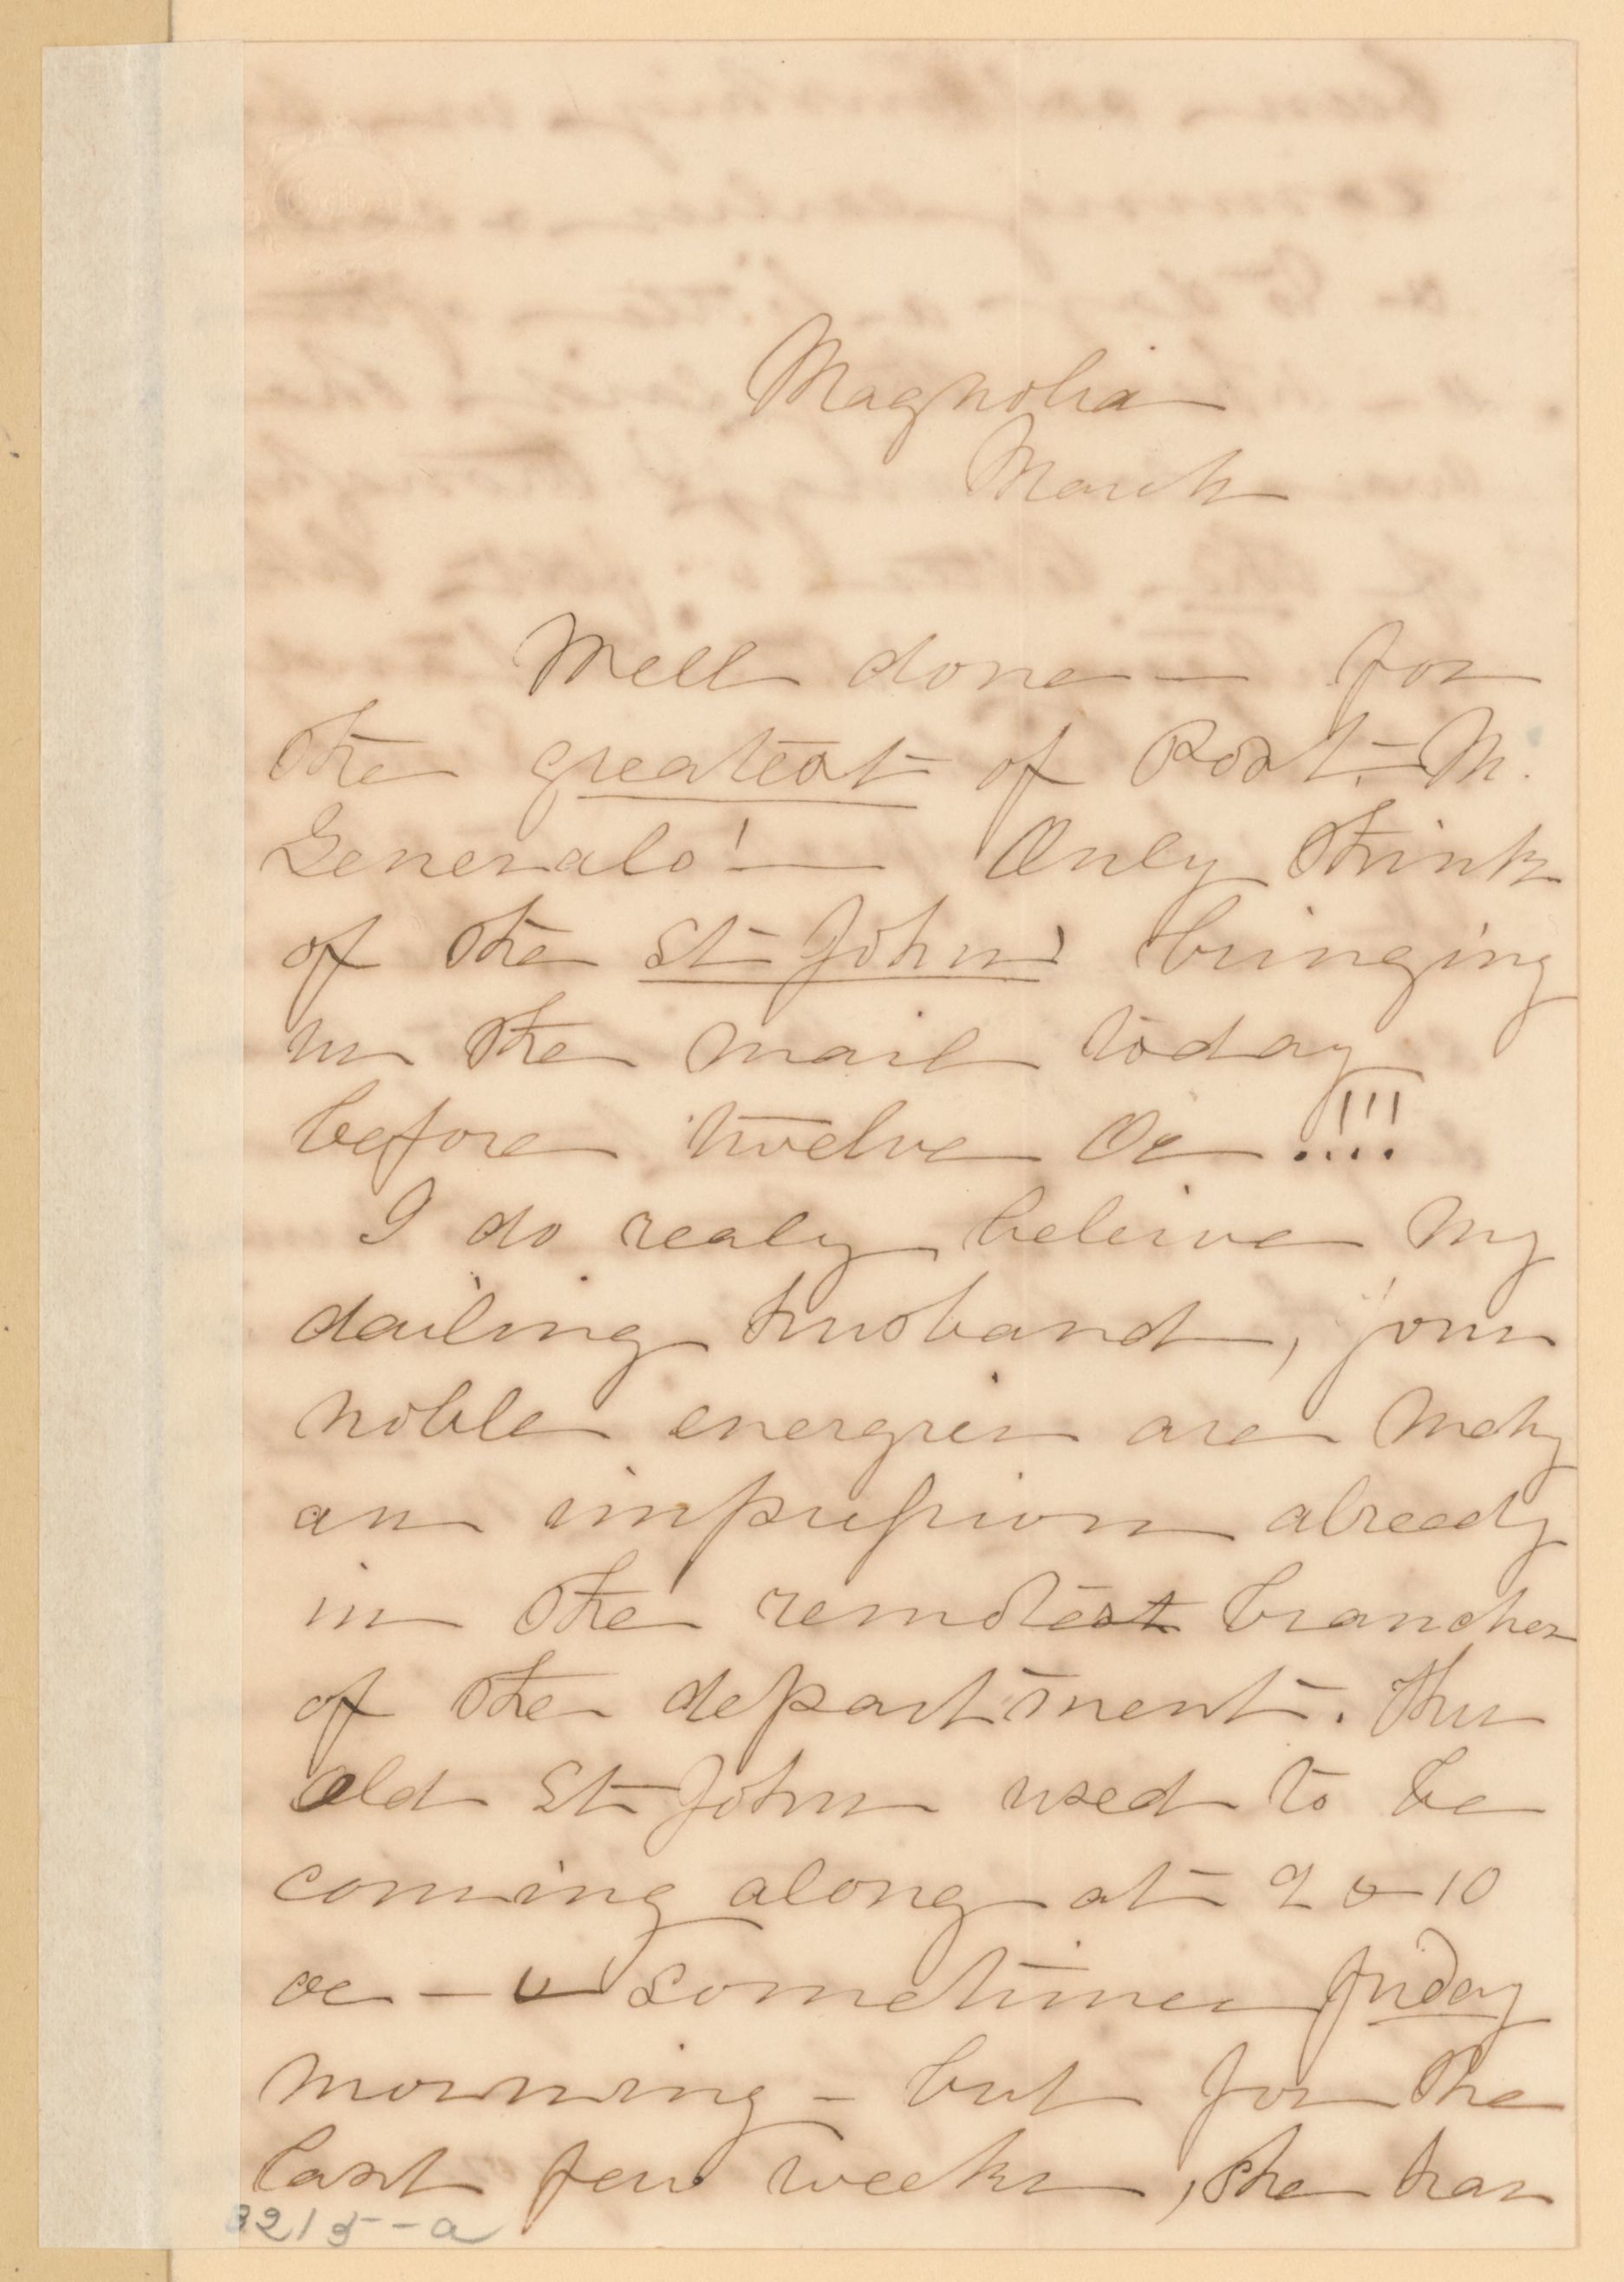 Magnolia
March
Well done — for
the greatest of Post. M.
Generals! — Only think
of the St Johns bringing
in the mail today
before twelve oc !!!!
I do realy beleive my
darling husband, your
noble energies are mkg
an impression already
in the remotest branches
of the department. The
old St John used to be
coming along at 9 & 10
oc — & sometimes friday
morning — but for the
last few weeks, she has
3215-a